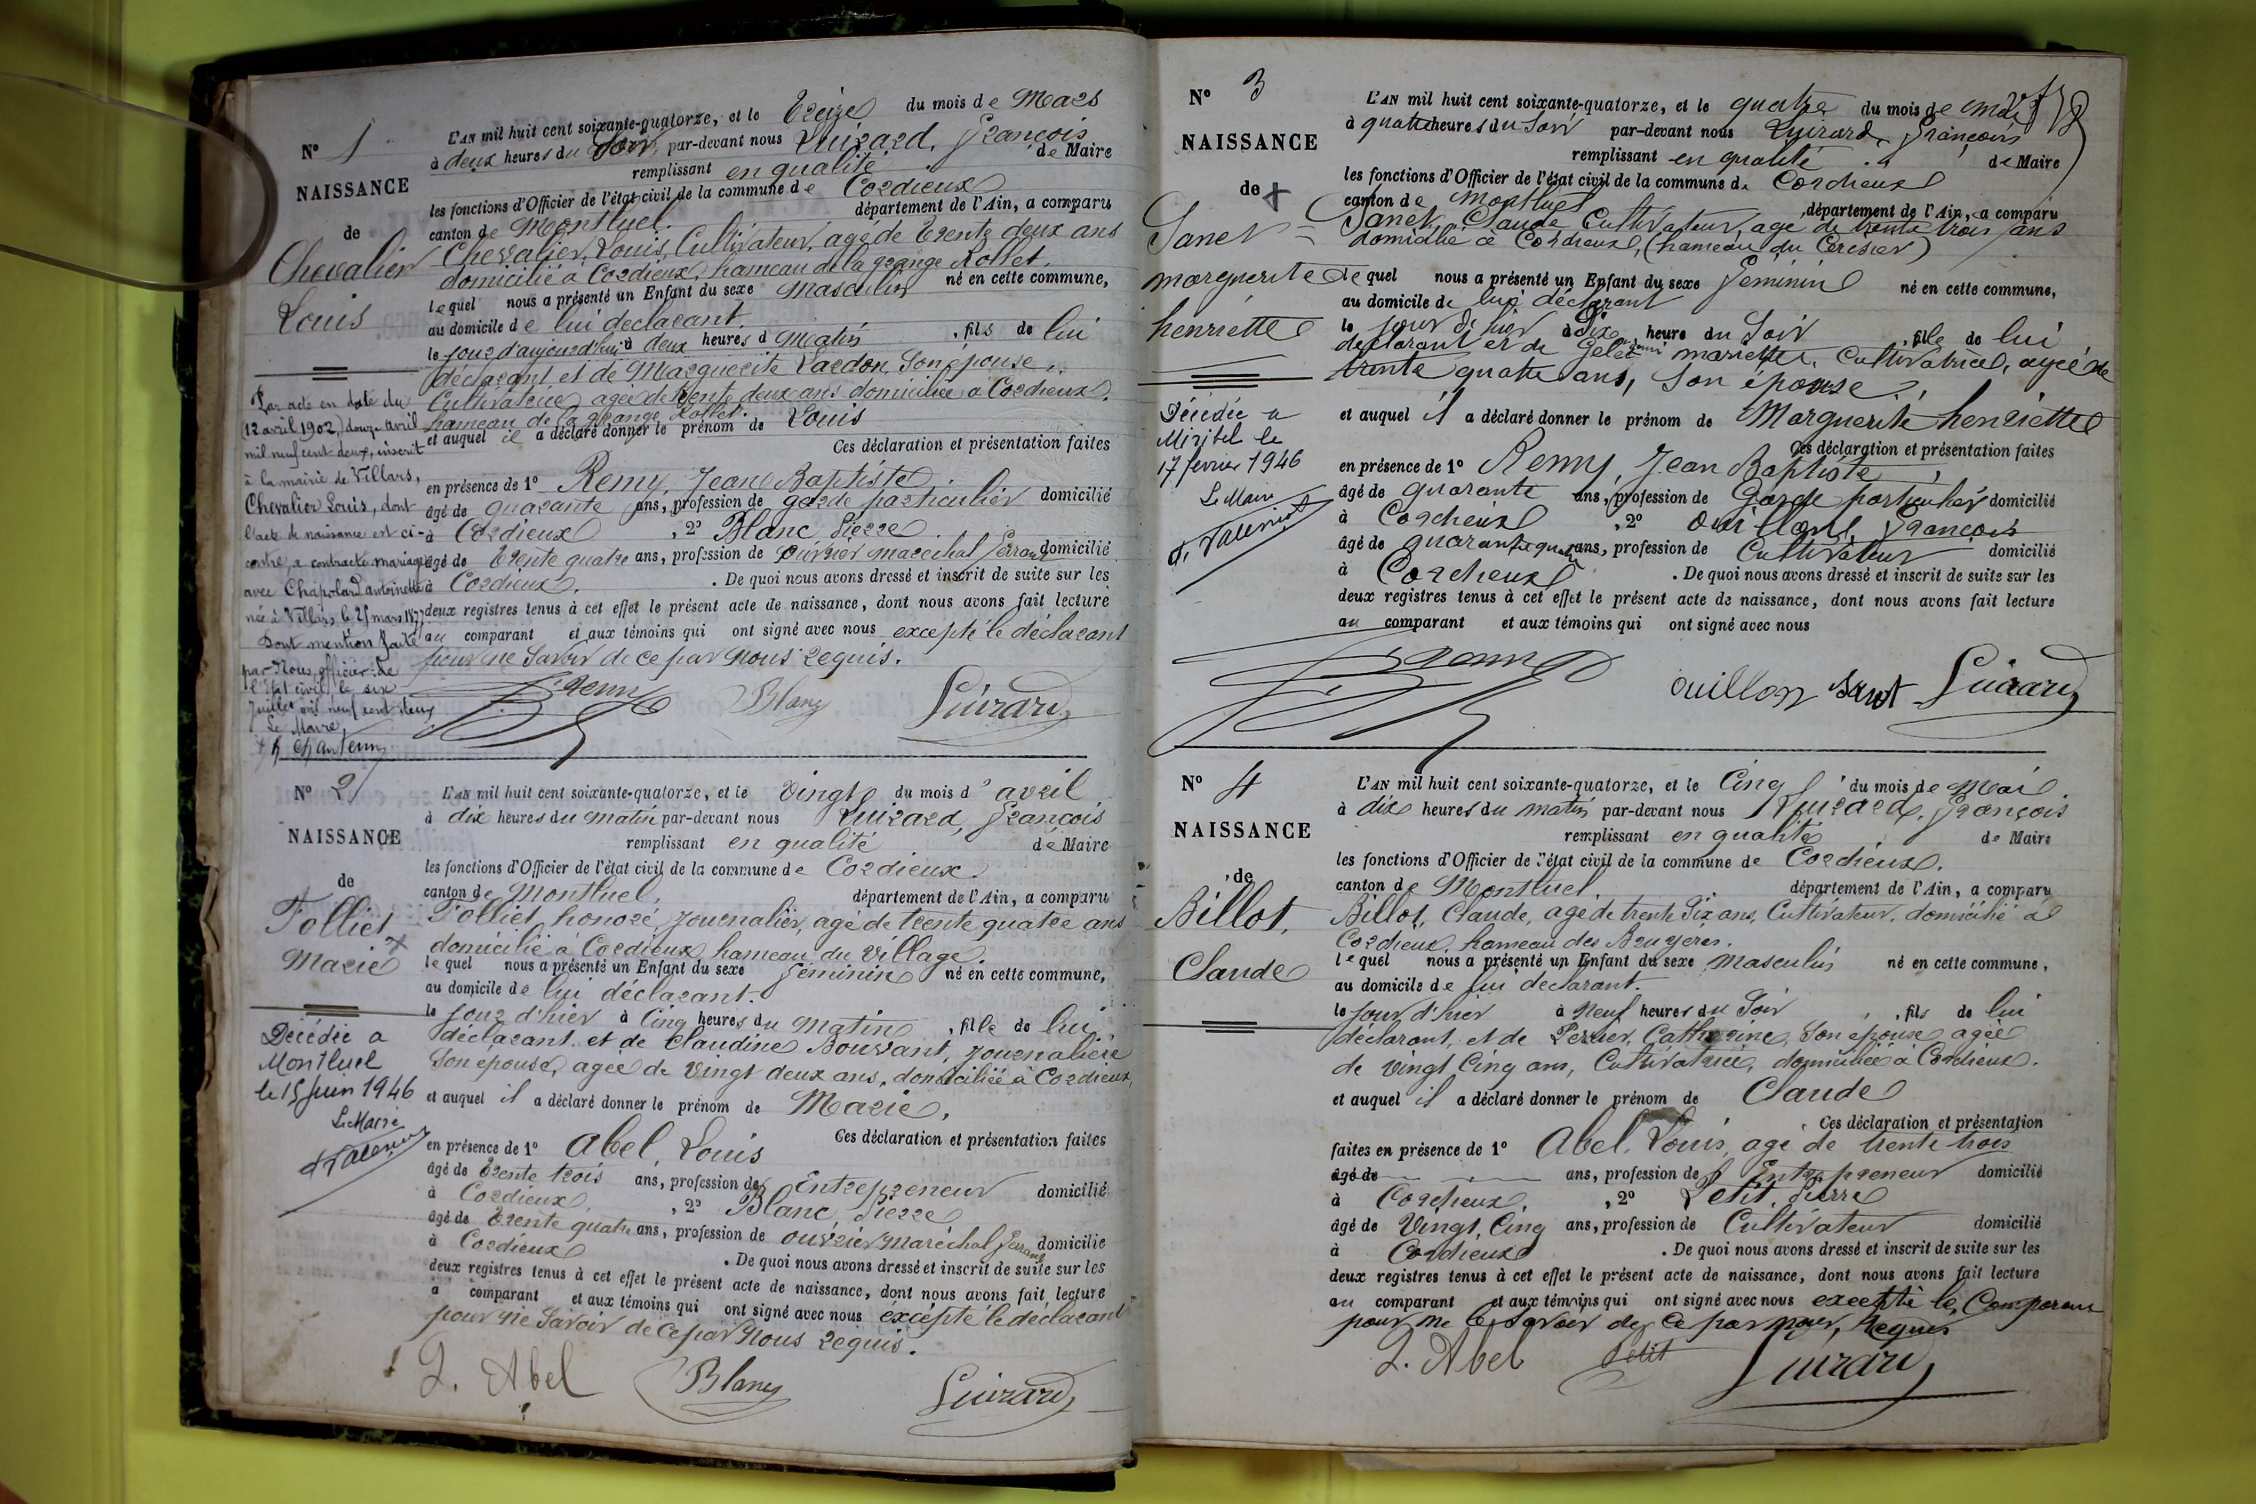 N° 1
NAISSANCE
de
Chevalier
Louis
L'AN mil huit cent soixante-quatorze, et le treize du mois de Mars
à deux heures du soir, par-devant nous Luizard, François
remplissant en qualité de Maire
les fonctions d'Officier de l'état civil de la commune de Cordieux
canton de Montluel. département de l'Ain, a comparu
Chevalier, Louis, Cultivateur, agé de trente deux ans
domicilié à Cordieux, hameau de la grange Rollet.
lequel nous a présenté un Enfant du sexe masculin né en cette commune,
au domicile de lui déclarant.
le jour d'aujourd'hui à deux heures d matin, fils de lui
déclarant et de Marguerite Lardon son épouse,
Cultivatrice, agée de trente deux ans domiciliée à Cordieux.
hameau de la grange Rollet.
et auquel il a déclaré donner le prénom de Louis
Ces déclaration et présentation faites
en présence de 1° Remy, Jean Baptiste
âgé de quarante ans, profession de garde particulier domicilié
à Cordieux, 2° Blanc Pierre
âgé de trente quatre ans, profession de ouvrier maréchal ferrant domicilié
à Cordieux. . De quoi nous avons dressé et inscrit de suite sur les
deux registres tenus à cet effet le présent acte de naissance, dont nous avons fait lecture
au comparant et aux témoins qui ont signé avec nous excepté le déclarant
pour ne savoir de ce par nous requis.
Remy Blanc Luizard
Par acte en date du
(12 avril 1902,) douze avril
mil neuf cent deux, inscrit
à la mairie de Villars,
Chevalier Louis, dont
l'acte de naissance est ci-
contre, a contracté mariage
avec Chapolard antoinette
née à Villars, le 25 mars 1877
Dont mention faite
par Nous, officier de
l'Etat civil, le six
Juillet mil neuf cent deux
Le Maire,
N° 2
NAISSANCE
de
Folliet
Marie
L'AN mil huit cent soixante-quatorze, et le vingt du mois d'avril
à dix heures du matin par-devant nous Luizard, François
remplissant en qualité de Maire
les fonctions d'Officier de l'état civil de la commune de Cordieux.
canton de Montluel, département de l'Ain, a comparu
Folliet, honoré, journalier, agé de trente quatre ans
domicilié à Cordieux hameau du village.
lequel nous a présenté un Enfant du sexe féminin né en cette commune,
au domicile de lui déclarant.
le jour d'hier à Cinq heures du matin, fille de lui
déclarant et de Claudine Bouvant, journalière
son épouse, agée de vingt deux ans, domiciliée à Cordieux,
et auquel il a déclaré donner le prénom de Marie,
Ces déclaration et présentation faites
en présence de 1° Abel, Louis
âgé de trente trois ans, profession de Entrepreneur domicilié
à Cordieux, 2° Blanc, Pierre
âgé de trente quatre ans, profession de ouvrier maréchal ferrant domicilié
à Cordieux . De quoi nous avons dressé et inscrit de suite sur les
deux registres tenus à cet effet le présent acte de naissance, dont nous avons fait lecture
à comparant et aux témoins qui ont signé avec nous excepté le déclarant
pour ne savoir de ce par nous requis.
L. Abel Blanc Luizard
Décédée a
Montluel
le 15 juin 1946
Le Maire
N° 3
NAISSANCE
de
Janet
marguerite
henriette
L'AN mil huit cent soixante-quatorze, et le quatre du mois de mai
à quatre heures du soir par-devant nous Luizard, François
remplissant en qualité de Maire
les fonctions d'Officier de l'état civil de la commune de Cordieux
canton de Montluel, département de l'Ain, a comparu
Janet, Claude, Cultivateur, agé de trente trois ans
domicilié à Cordieux, (hameau du Cerisier)
lequel nous a présenté un Enfant du sexe féminin né en cette commune,
au domicile de lui déclarant
le jour d'hier à dix heure du soir, fille de lui
déclarant et de mariette, Cultivatrice, agée de
trente quatre ans, son épouse
et auquel il a déclaré donner le prénom de Marguerite henriette
Ces déclaration et présentation faites
en présence de 1° Remy, Jean Baptiste,
âgé de quarante ans, profession de Garde particulier domicilié
à Cordieux, 2° Ouillon, François
âgé de quarante quatre ans, profession de Cultivateur domicilié
à Cordieux . De quoi nous avons dressé et inscrit de suite sur les
deux registres tenus à cet effet le présent acte de naissance, dont nous avons fait lecture
au comparant et aux témoins qui ont signé avec nous
Remy ouillon Luizard
Décédée a
Miribel le
17 février 1946
Le Maire
N° 4
NAISSANCE
de
Billot,
Claude
L'AN mil huit cent soixante-quatorze, et le Cinq du mois de Mai
à dix heures du matin par-devant nous Luizard, François
remplissant en qualité de Maire
les fonctions d'Officier de l'état civil de la commune de Cordieux.
canton de Montluel. département de l'Ain, a comparu
Billot, Claude, agé de trente six ans, Cultivateur, domicilié à
Cordieux, hameau des Bruyères.
lequel nous a présenté un Enfant du sexe masculin né en cette commune,
au domicile de lui déclarant.
le jour d'hier à neuf heures du soir, fils de lui
déclarant, et de Perrier, Catherine, son épouse agée
de vingt Cinq ans, Cultivatrice, domiciliée à Cordieux.
et auquel il a déclaré donner le prénom de Claude
Ces déclaration et présentation
faites en présence de 1° Abel, Louis, agé de trente trois
âgé de ans, profession de Entrepreneur domicilié
à Cordieux, 2° Petit, Pierre
âgé de Vingt, Cinq ans, profession de Cultivateur domicilié
à Cordieux . De quoi nous avons dressé et inscrit de suite sur les
deux registres tenus à cet effet le présent acte de naissance, dont nous avons fait lecture
au comparant et aux témoins qui ont signé avec nous excepté le Comparant
pour ne le savoir de ce par nous, Requis
L. Abel Petit Luizard